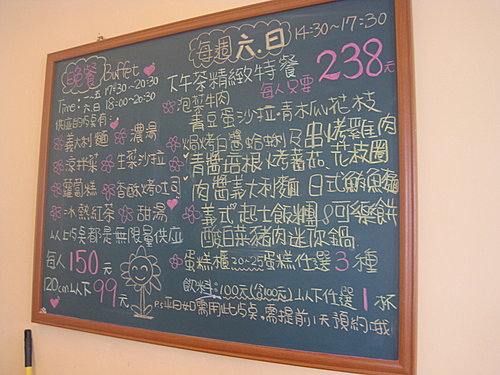 晚餐 Buffet
一~五 17:30~20:30
Time: 六.日 18:00~20:30
供應的巧桌有:
義大利麵 濃湯
涼拌菜 生菜沙拉
蘿蔔糕 香酥烤吐司
冰熱紅茶 甜湯
以上巧桌都是無限量供應
每人150元
120cm以下99元
每週六.日 14:30~17:30
下午茶精緻特餐 每人只要 238元
泡菜牛肉
青豆蛋沙拉.青木瓜花枝
焗烤白醬蛤蜊及串烤雞肉
青醬培根.烤蕃茄.花枝圈
肉醬義大利麵 日式鮪魚麵
義式起士飯糰 可樂餅
酸白菜豬肉迷你鍋
蛋糕櫃20~25蛋糕任選3種
飲料:100元(含100元)以下任選1杯
P.s平日如需用此巧桌,需提前1天預約哦